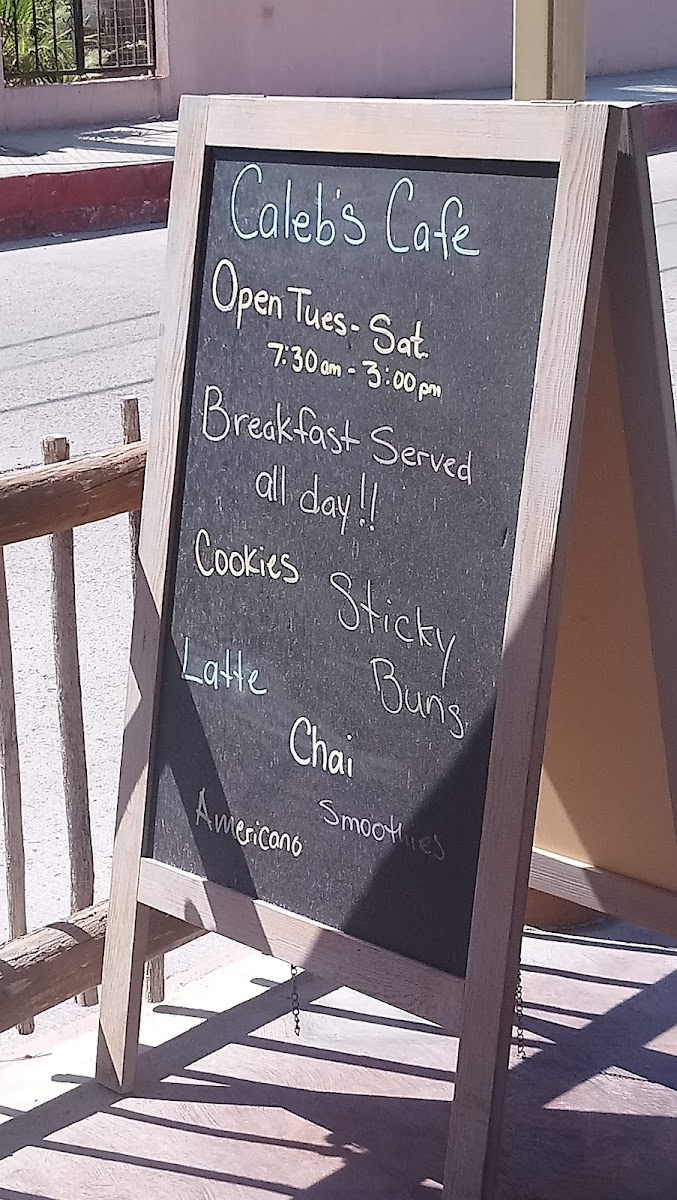 Caleb's Cafe
Open Tues - Sat.
7:30am - 3:00pm
Breakfast Served
all day!!
Cookies
Sticky
Buns
Latte
Chai
Americano
Smoothies